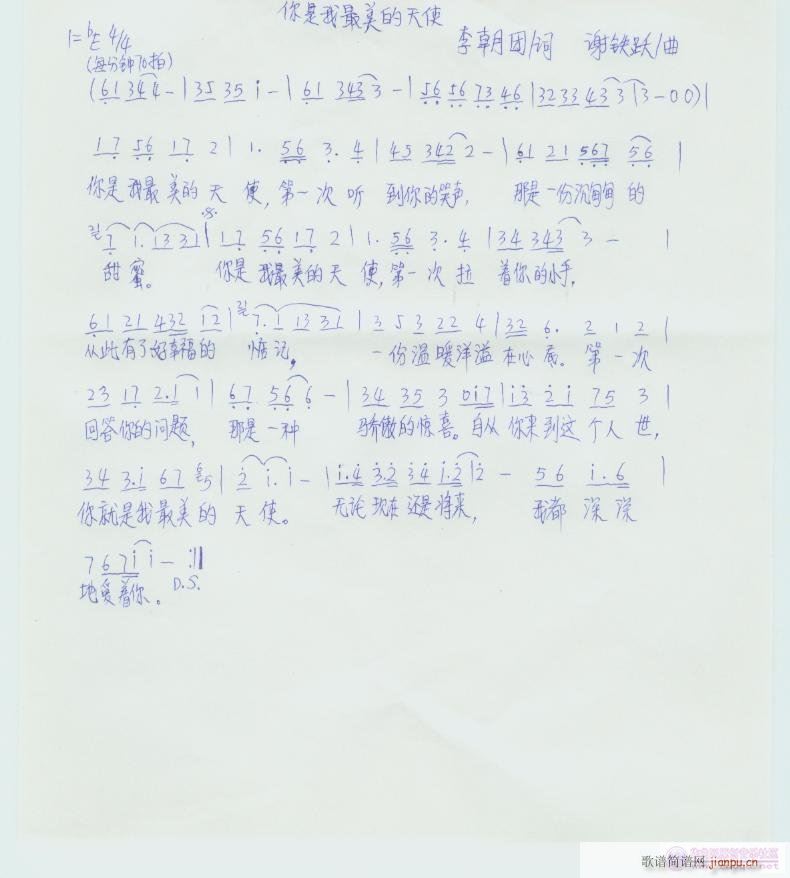 你是我最美的天使
1=♭E 4/4 李朝团/词 谢铁跃/曲
(每分钟70拍)
(6 1 3 4 4 - | 3 5 3 5 i - | 6 1 3 4 3 3 - | 5 6 5 6 7 3 4 6 | 3 2 3 3 4 3 3 | 3 - 0 0) |
1 7 5 6 1 7 2 | 1. 5 6 3. 4 | 4 5 3 4 2 2 - | 6 1 2 1 5 6 7 5 6 |
你是我最美的天使,第一次听到你的笑声, 那是一份沉甸甸的
7 1. 1 3 3 1 | 1 7 5 6 1 7 2 | 1. 5 6 3. 4 | 3 4 3 4 3 3 - |
甜蜜。 你是我最美的天使,第一次拉着你的小手,
6 1 2 1 4 3 2 1 2 | 7. 1 1 3 3 1 | 3 5 3 2 2 4 | 3 2 6. 2 1 2 |
从此有了好幸福的惦记。 一份温暖洋溢在心底。第一次
2 3 1 7 2. 1 1 | 6 7 5 6 6 - | 3 4 3 5 3 0 i 7 | i 3 2 i 7 5 3 |
回答你的问题, 那是一种 骄傲的惊喜。自从你来到这个人世,
3 4 3. i 6 7 5 | 2 i. i - | i. 4 3. 2 3 4 i. 2 | 2 - 5 6 i. 6 |
你就是我最美的天使。 无论现在还是将来, 我都深深
7 6 7 i i - :||
地爱着你。 D.S.
歌谱简谱网 jianpu.cn